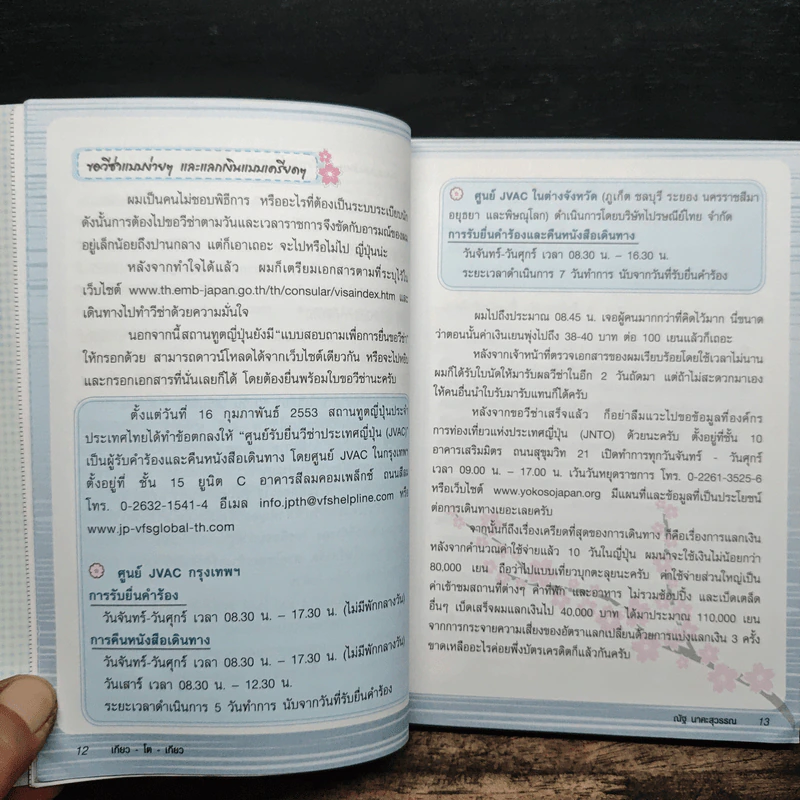 ขอวีซ่าแบบง่ายๆ และแลกเงินแบบเครียดๆ
ผมเป็นคนไม่ชอบพิธีการ หรืออะไรที่ต้องเป็นระบบระเบียบนัก
ดังนั้นการต้องไปขอวีซ่าตามวันและเวลาราชการจึงขัดกับอารมณ์ของผม
อยู่เล็กน้อยถึงปานกลาง แต่ก็เอาเถอะ จะไปหรือไม่ไป ญี่ปุ่นน่ะ
หลังจากทำใจได้แล้ว ผมก็เตรียมเอกสารตามที่ระบุไว้ใน
เว็บไซต์ www.th.emb-japan.go.th/th/consular/visaindex.htm และ
เดินทางไปทำวีซ่าด้วยความมั่นใจ
นอกจากนี้สถานทูตญี่ปุ่นยังมี "แบบสอบถามเพื่อการยื่นขอวีซ่า"
ให้กรอกด้วย สามารถดาวน์โหลดได้จากเว็บไซต์เดียวกัน หรือจะไปหยิบ
และกรอกเอกสารที่นั่นเลยก็ได้ โดยต้องยื่นพร้อมใบขอวีซ่านะครับ
ตั้งแต่วันที่ 16 กุมภาพันธ์ 2553 สถานทูตญี่ปุ่นประจำ
ประเทศไทยได้ทำข้อตกลงให้ "ศูนย์รับยื่นวีซ่าประเทศญี่ปุ่น (JVAC)"
เป็นผู้รับคำร้องและคืนหนังสือเดินทาง โดยศูนย์ JVAC ในกรุงเทพฯ
ตั้งอยู่ที่ ชั้น 15 ยูนิต C อาคารสีลมคอมเพล็กซ์ ถนนสีลม
โทร. 0-2632-1541-4 อีเมล info.jpth@vfshelpline.com หรือ
www.jp-vfsglobal-th.com
ศูนย์ JVAC กรุงเทพฯ
การรับยื่นคำร้อง
วันจันทร์-วันศุกร์ เวลา 08.30 น. – 17.30 น. (ไม่มีพักกลางวัน)
การคืนหนังสือเดินทาง
วันจันทร์-วันศุกร์ เวลา 08.30 น. – 17.30 น. (ไม่มีพักกลางวัน)
วันเสาร์ เวลา 08.30 น. – 12.30 น.
ระยะเวลาดำเนินการ 5 วันทำการ นับจากวันที่รับยื่นคำร้อง
12 เกียว - โต - เกียว
ศูนย์ JVAC ในต่างจังหวัด (ภูเก็ต ชลบุรี ระยอง นครราชสีมา
อยุธยา และพิษณุโลก) ดำเนินการโดยบริษัทไปรษณีย์ไทย จำกัด
การรับยื่นคำร้องและคืนหนังสือเดินทาง
วันจันทร์-วันศุกร์ เวลา 08.30 น. – 16.30 น.
ระยะเวลาดำเนินการ 7 วันทำการ นับจากวันที่รับยื่นคำร้อง
ผมไปถึงประมาณ 08.45 น. เจอผู้คนมากกว่าที่คิดไว้มาก นี่ขนาด
ว่าตอนนั้นค่าเงินเยนพุ่งไปถึง 38-40 บาท ต่อ 100 เยนแล้วก็เถอะ
หลังจากเจ้าหน้าที่ตรวจเอกสารของผมเรียบร้อยโดยใช้เวลาไม่นาน
ผมก็ได้รับใบนัดให้มารับผลวีซ่าในอีก 2 วันถัดมา แต่ถ้าไม่สะดวกมาเอง
ให้คนอื่นนำใบรับมารับแทนก็ได้ครับ
หลังจากขอวีซ่าเสร็จแล้ว ก็อย่าลืมแวะไปขอข้อมูลที่องค์กร
การท่องเที่ยวแห่งประเทศญี่ปุ่น (JNTO) ด้วยนะครับ ตั้งอยู่ที่ชั้น 10
อาคารเสริมมิตร ถนนสุขุมวิท 21 เปิดทำการทุกวันจันทร์ - วันศุกร์
เวลา 09.00 น. – 17.00 น. เว้นวันหยุดราชการ โทร. 0-2261-3525-6
หรือเว็บไซต์ www.yokosojapan.org มีแผนที่และข้อมูลที่เป็นประโยชน์
ต่อการเดินทางเยอะเลยครับ
จากนั้นก็ถึงเรื่องเครียดที่สุดของการเดินทาง ก็คือเรื่องการแลกเงิน
หลังจากคำนวณค่าใช้จ่ายแล้ว 10 วันในญี่ปุ่น ผมน่าจะใช้เงินไม่น้อยกว่า
80,000 เยน ถือว่าไปแบบเที่ยวบุกตะลุยนะครับ ค่าใช้จ่ายส่วนใหญ่เป็น
ค่าเข้าชมสถานที่ต่างๆ ค่าที่พัก และอาหาร ไม่รวมช้อปปิ้ง และเบ็ดเตล็ด
อื่นๆ เบ็ดเสร็จผมแลกเงินไป 40,000 บาท ได้มาประมาณ 110,000 เยน
จากการกระจายความเสี่ยงของอัตราแลกเปลี่ยนด้วยการแบ่งแลกเงิน 3 ครั้ง
ขาดเหลืออะไรค่อยพึ่งบัตรเครดิตก็แล้วกันครับ
ณัฐ นาคะสุวรรณ 13